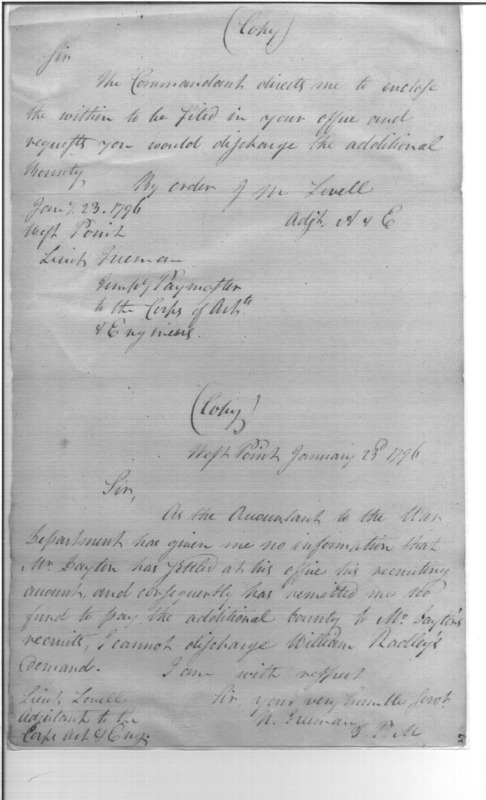 (Copy)
Sir
The Commandant directs me to enclose
the within to be filed in your office and
requests you would discharge the additional
Bounty,
By order of Mr Lovell
Jany. 23. 1796
Adjt. A & E
West Point
Lieut Freeman
Paymaster
to the Corps of Arts
& Engineers.
(Copy)
West Point January 23d 1796
Sir,
As the Accountant to the War
Department has given me no information that
Mr. Dayton has settled at his office his recruiting
account, and consequently has remitted me no
fund to pay the additional bounty to Mr. Dayton's
recruits, I cannot discharge William Radley's
Demand.
I am with respect
Sir, your very humble servt.
Lieut Lovell
N. Freeman
Adjutant to the
P. M
Corps Art & Eng.